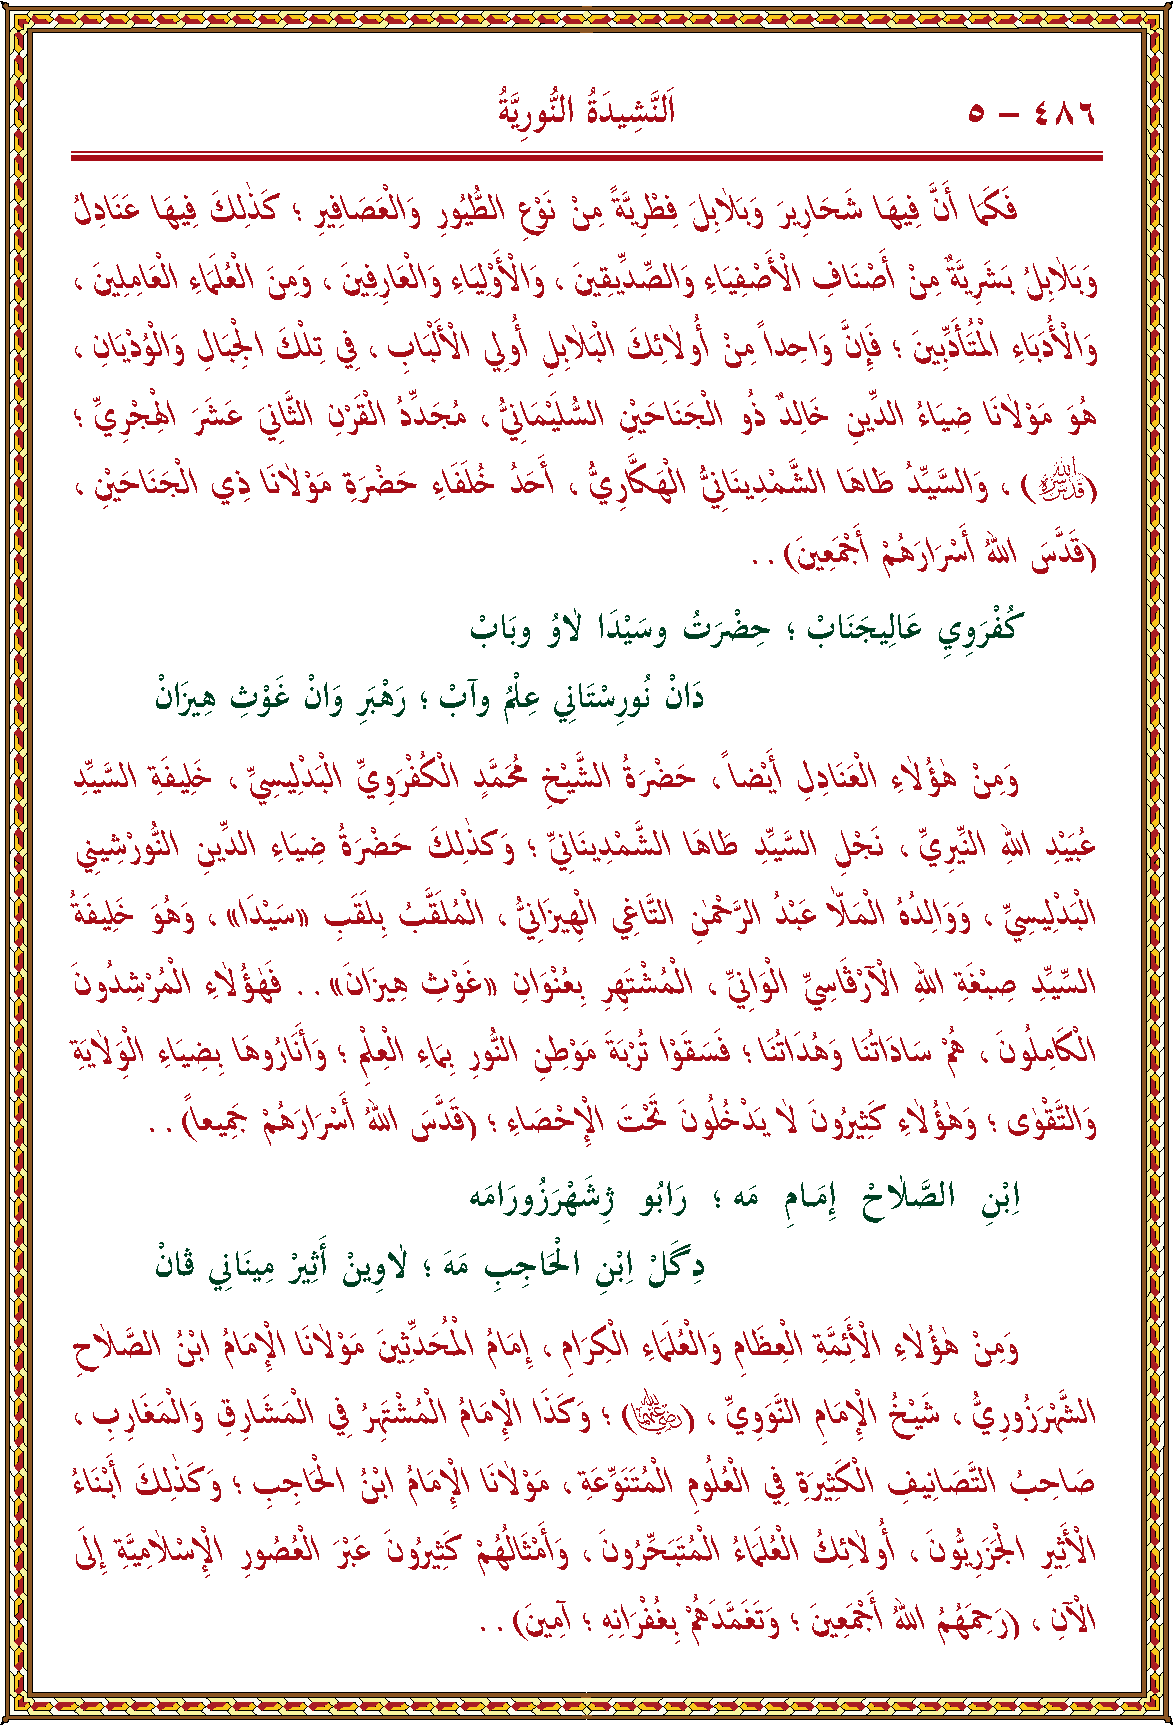 ٤٨٦ – ٥ اَلنَّشِيدَةُ النُّورِيَّةُ
فَكَمَا أَنَّ فِيهَا شَحَارِيرَ وَبَلَابِلَ فِطْرِيَّةً مِنْ نَوْعِ الطُّيُورِ وَالْعَصَافِيرِ ؛ كَذٰلِكَ فِيهَا عَنَادِلُ
وَبَلَابِلُ بَشَرِيَّةٌ مِنْ أَصْنَافِ الْأَصْفِيَاءِ وَالصِّدِّيقِينَ ، وَالْأَوْلِيَاءِ وَالْعَارِفِينَ ، وَمِنَ الْعُلَمَاءِ الْعَامِلِينَ ،
وَالْأُدَبَاءِ الْمُتَأَدِّبِينَ ؛ فَإِنَّ وَاحِداً مِنْ أُولَائِكَ الْبَلَابِلِ أُولِي الْأَلْبَابِ ، فِي تِلْكَ الْجِبَالِ وَالْوُدْيَانِ ،
هُوَ مَوْلَانَا ضِيَاءُ الدِّينِ خَالِدٌ ذُو الْجَنَاحَيْنِ السُّلَيْمَانِيُّ ، مُجَدِّدُ الْقَرْنِ الثَّانِيَ عَشَرَ الْهِجْرِيِّ ؛
(قدس الله سره) ، وَالسَّيِّدُ طَاهَا الشَّمْدِينَانِيُّ الْهَكَّارِيُّ ، أَحَدُ خُلَفَاءِ حَضْرَةِ مَوْلَانَا ذِي الْجَنَاحَيْنِ ،
(قَدَّسَ اللهُ أَسْرَارَهُمْ أَجْمَعِينَ) . .
كُفْرَوِيِ عَالِيجَنَابْ ؛ حِضْرَتُ وسَيْدَا لَاوُ وبَابْ
دَانْ نُورِسْتَانِي عِلْمُ وآبْ ؛ رَهْبَرِ وَانْ غَوْثِ هِيزَانْ
وَمِنْ هٰؤُلَاءِ الْعَنَادِلِ أَيْضاً ، حَضْرَةُ الشَّيْخِ مُحَمَّدٍ الْكُفْرَوِيِّ الْبَدْلِيسِيِّ ، خَلِيفَةِ السَّيِّدِ
عُبَيْدِ اللهِ النِّيرِيِّ ، نَجْلِ السَّيِّدِ طَاهَا الشَّمْدِينَانِيِّ ؛ وَكَذٰلِكَ حَضْرَةُ ضِيَاءِ الدِّينِ النُّورْشِينِي
الْبَدْلِيسِيِّ ، وَوَالِدُهُ الْمَلَّا عَبْدُ الرَّحْمٰنِ التَّاغِي الْهِيزَانِيُّ ، الْمُلَقَّبُ بِلَقَبِ «سَيْدَا» ، وَهُوَ خَلِيفَةُ
السِّيِّدِ صِبْغَةِ اللهِ الْآرْڤَاسِيِّ الْوَانِيِّ ، الْمُشْتَهِرِ بِعُنْوَانِ «غَوْثِ هِيزَانَ» . . فَهٰؤُلَاءِ الْمُرْشِدُونَ
الْكَامِلُونَ ، هُمْ سَادَاتُنَا وَهُدَاتُنَا ؛ فَسَقَوْا تُرْبَةَ مَوْطِنِ النُّورِ بِمَاءِ الْعِلْمِ ؛ وَأَنَارُوهَا بِضِيَاءِ الْوَلَايَةِ
وَالتَّقْوٰى ؛ وَهٰؤُلَاءِ كَثِيرُونَ لَا يَدْخُلُونَ تَحْتَ الْإِحْصَاءِ ؛ (قَدَّسَ اللهُ أَسْرَارَهُمْ جَمِيعاً) . .
اِبْنِ الصَّلَاحْ إِمَـامِ مَه ؛ رَابُو ژِشَهْرَزُورَامَه
دِگَلْ اِبْنِ الْحَاجِبِ مَهَ ؛ لَاوِينْ أَثِيرْ مِينَانِي ڤَانْ
وَمِنْ هٰؤُلَاءِ الْأَئِمَّةِ الْعِظَامِ وَالْعُلَمَاءِ الْكِرَامِ ، إِمَامُ الْمُحَدِّثِينَ مَوْلَانَا الْإِمَامُ ابْنُ الصَّلَاحِ
الشَّهْرَزُورِيُّ ، شَيْخُ الْإِمَامِ النَّوَوِيِّ ، (رضي الله عنهما) ؛ وَكَذَا الْإِمَامُ الْمُشْتَهِرُ فِي الْمَشَارِقِ وَالْمَغَارِبِ ،
صَاحِبُ التَّصَانِيفِ الْكَثِيرَةِ فِي الْعُلُومِ الْمُتَنَوِّعَةِ ، مَوْلَانَا الْإِمَامُ ابْنُ الْحَاجِبِ ؛ وَكَذٰلِكَ أَبْنَاءُ
الْأَثِيرِ الْجَزَرِيُّونَ ، أُولَائِكُ الْعُلَمَاءُ الْمُتَبَحِّرُونَ ، وَأَمْثَالُهُمْ كَثِيرُونَ عَبْرَ الْعُصُورِ الْإِسْلَامِيَّةِ إِلَى
الْآنِ ، (رَحِمَهُمُ اللهُ أَجْمَعِينَ ؛ وَتَغَمَّدَهُمْ بِغُفْرَانِهِ ؛ آمِينَ) . .